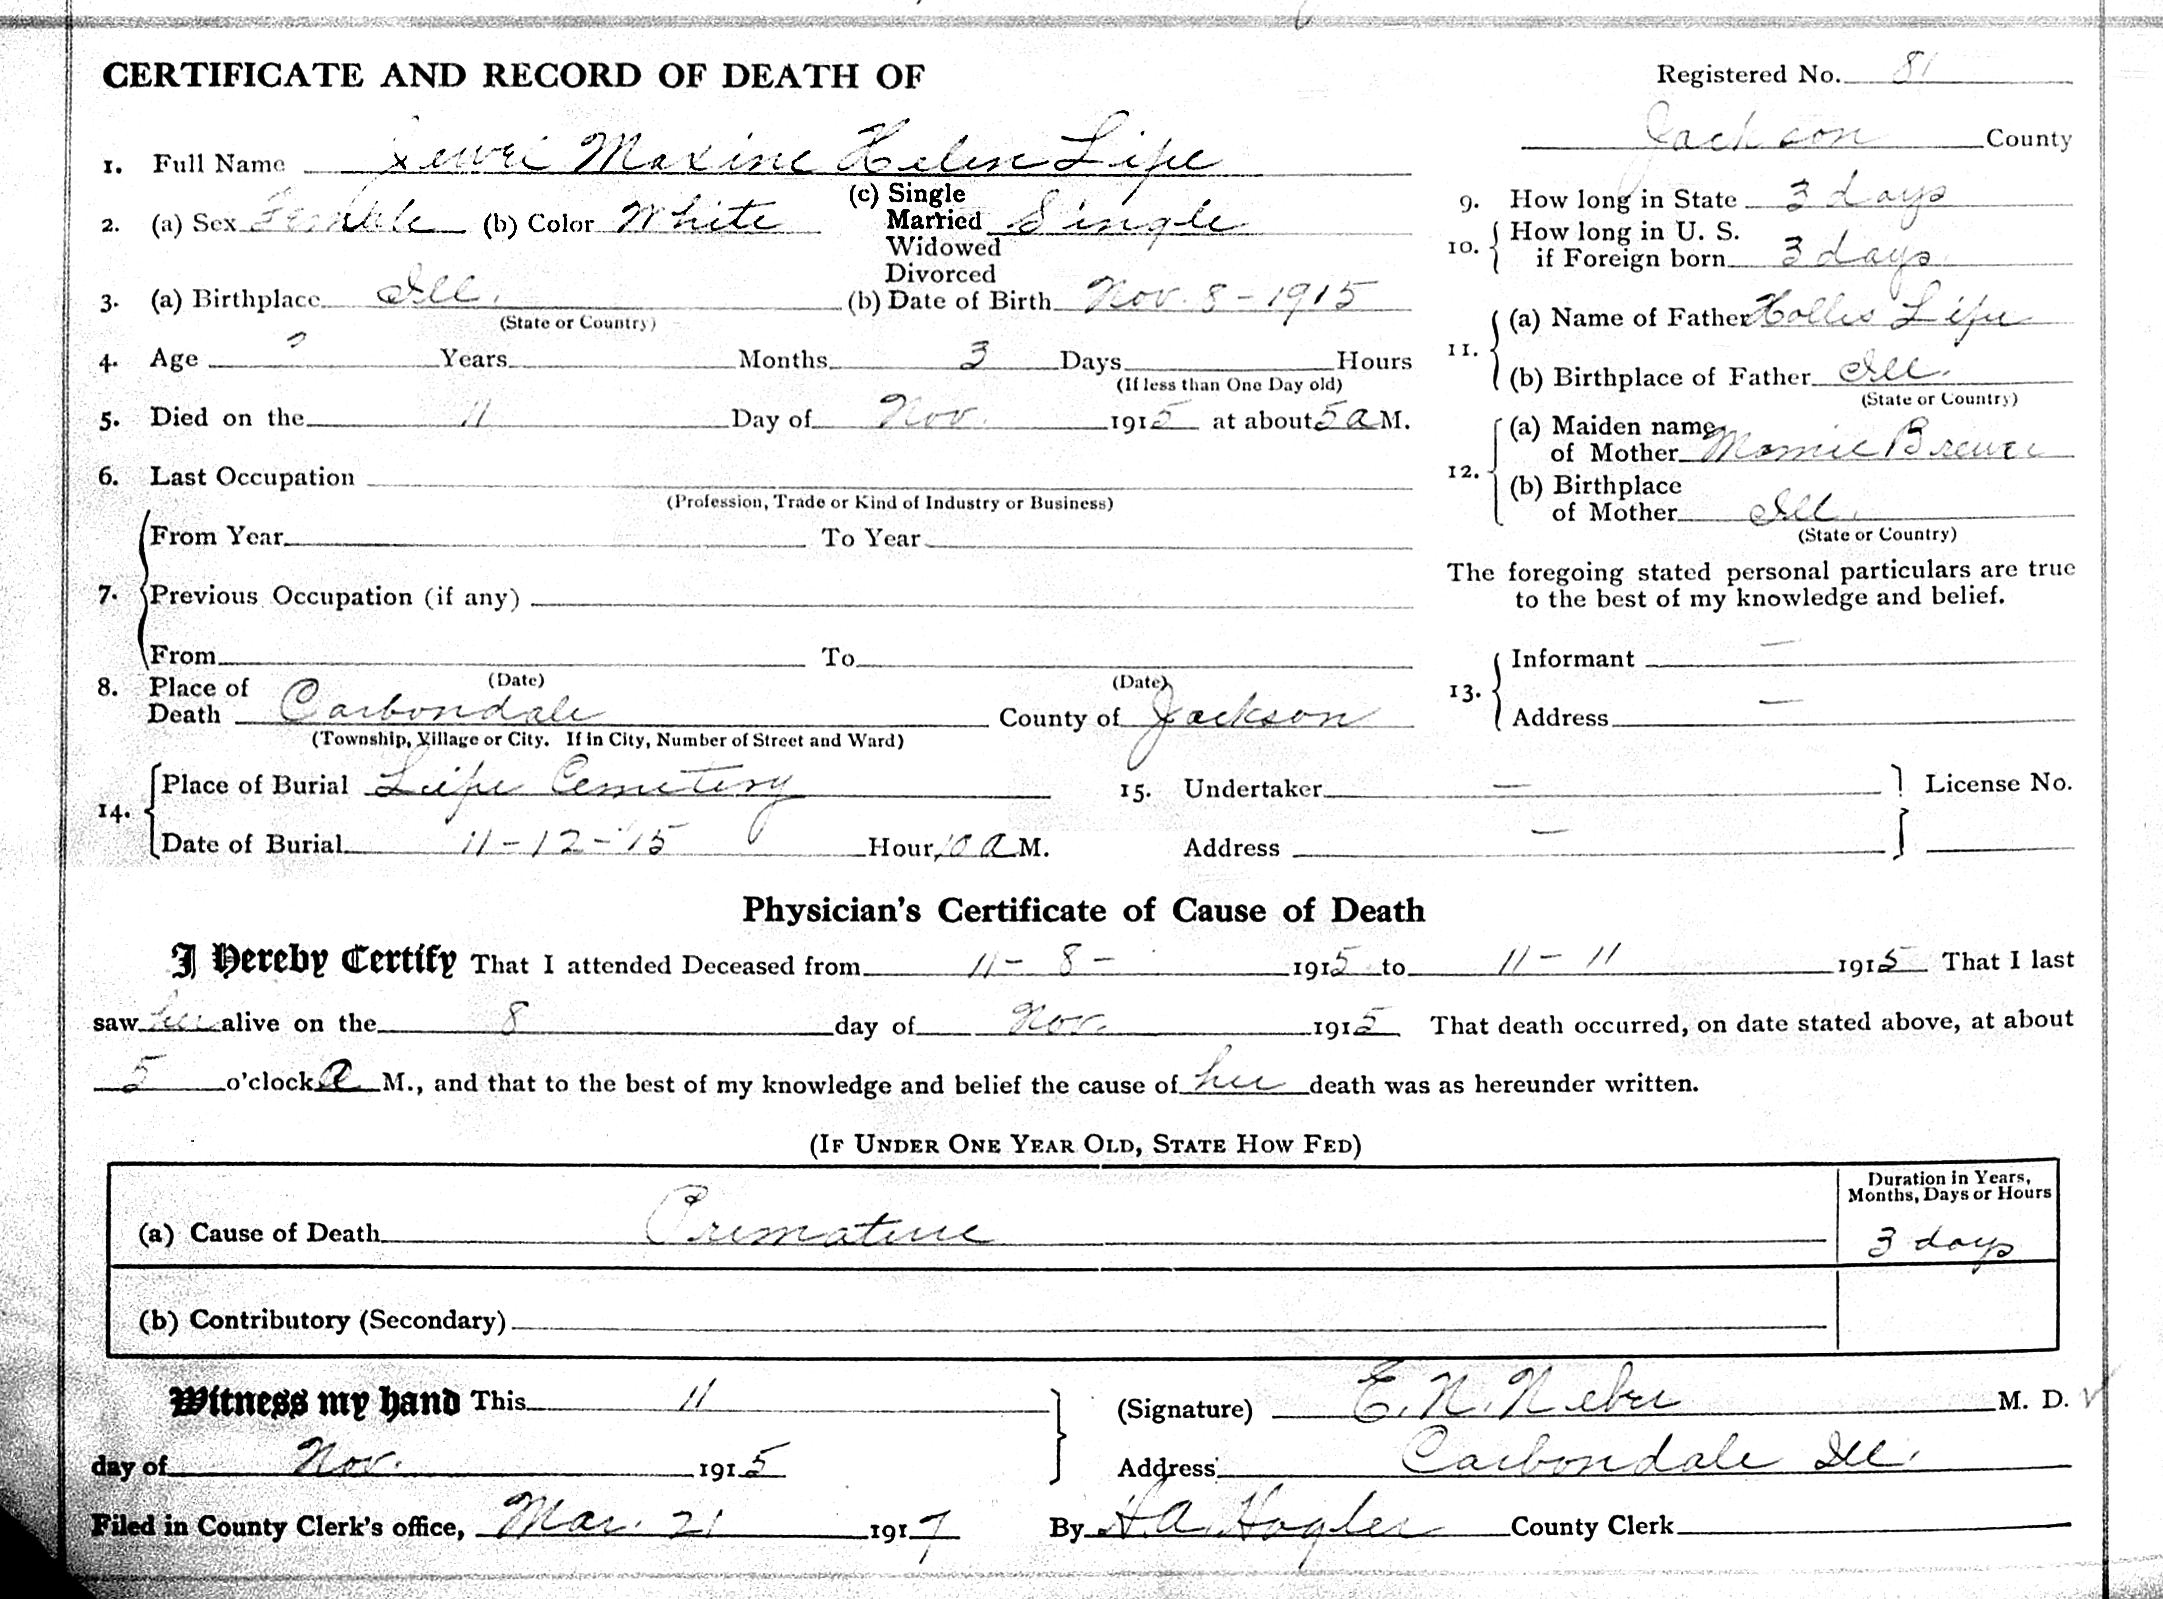 CERTIFICATE AND RECORD OF DEATH OF
Registered No. 81
Jackson County
1. Full Name Jewel Maxine Helen Lipe
2. (a) Sex Female (b) Color White (c) Single Married Widowed Divorced Single
3. (a) Birthplace Ill. (b) Date of Birth Nov. 8 - 1915
(State or Country)
4. Age Years Months 3 Days Hours
(If less than One Day old)
5. Died on the 11 Day of Nov. 1915 at about 5 a M.
6. Last Occupation
(Profession, Trade or Kind of Industry or Business)
7. From Year To Year
Previous Occupation (if any)
From To
(Date) (Date)
8. Place of Death Carbondale County of Jackson
(Township, Village or City. If in City, Number of Street and Ward)
9. How long in State 3 days
10. How long in U. S. if Foreign born 3 days.
11. (a) Name of Father Hollis Lipe
(b) Birthplace of Father Ill.
(State or Country)
12. (a) Maiden name of Mother Mamie Brewer
(b) Birthplace of Mother Ill.
(State or Country)
The foregoing stated personal particulars are true
to the best of my knowledge and belief.
13. Informant —
Address —
14. Place of Burial Lipe Cemetery
Date of Burial 11 - 12 - '15 Hour 10 a M.
15. Undertaker — License No.
Address —
Physician's Certificate of Cause of Death
I Hereby Certify That I attended Deceased from 11 - 8 - 1915 to 11 - 11 1915 That I last
saw her alive on the 8 day of Nov. 1915 That death occurred, on date stated above, at about
5 o'clock a M., and that to the best of my knowledge and belief the cause of her death was as hereunder written.
(IF UNDER ONE YEAR OLD, STATE HOW FED)
Duration in Years,
Months, Days or Hours
(a) Cause of Death Premature 3 days
(b) Contributory (Secondary)
Witness my hand This 11
day of Nov. 1915
(Signature) E. N. Neber M. D.
Address Carbondale Ill.
Filed in County Clerk's office, Mar. 21 1917 By H. A. Hogler County Clerk